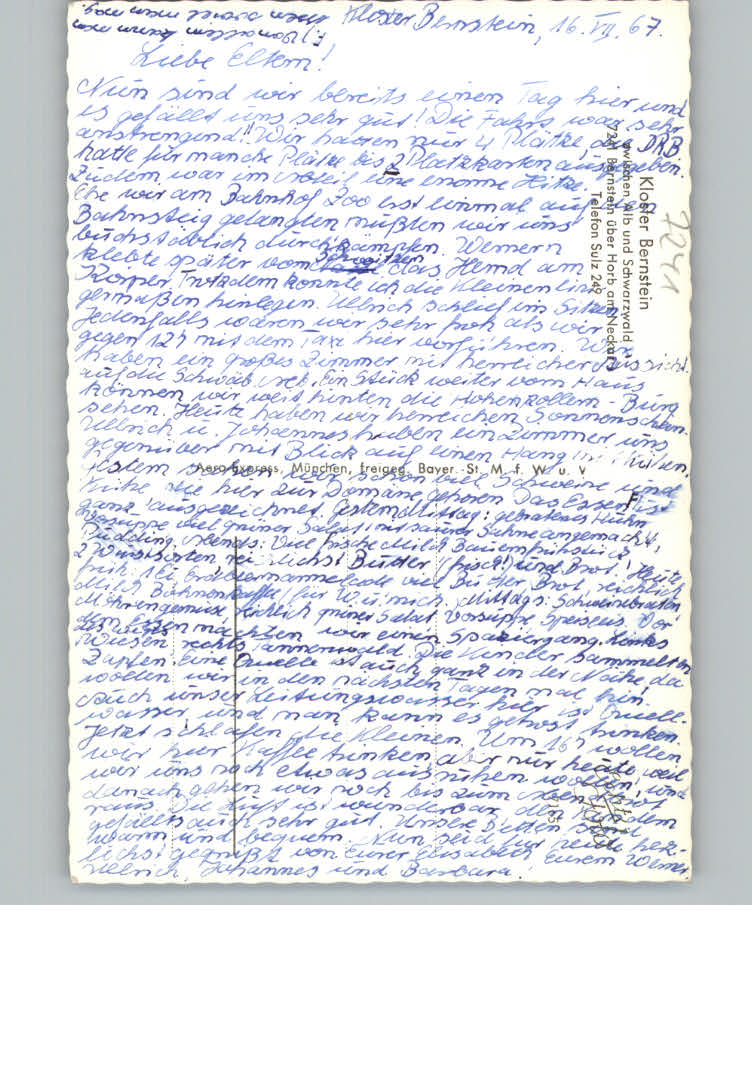 Kloster Bernstein, 16. VII. 67.
Liebe Eltern!
Nun sind wir bereits einen Tag hier und
es gefällt uns sehr gut! Die Fahrt war sehr
anstrengend! Wir hatten nur 4 Plätze, da DRB
hatte für manche Plätze bis 2 Platzkarten ausgegeben.
Zudem war im eine enorme Hitze.
Ehe wir am Bahnhof Zoo erst einmal auf den
Bahnsteig gelangten mußten wir uns
buchstäblich durchkämpfen. Wernern
klebte später vom Schwitzen das Hemd am
Körper. Trotzdem konnte ich die Kleinen eini
germaßen hinlegen. Ullrich schlief im Sitzen.
Jedenfalls waren wir sehr froh als wir
gegen 12h mit dem Taxi hier vorfuhren. Wir
haben ein großes Zimmer mit herrlicher Aussicht
auf die Schwäb. Ein Stück weiter vom Haus
können wir weit hinten die Hohenzollern-Burg
sehen. Heute haben wir herrlichen Sonnenschein.
Ullrich u. Johannes haben ein Zimmer uns
gegenüber mit Blick auf einen Hang mit
Gestern sahen wir schon viel Schweine und
die hier zur Domäne gehören. Das Essen ist
ganz ausgezeichnet. Gestern Mittag: gebratenes Huhn
Vorsuppe viel grüner Salat mit saurer Sahne angemacht,
Pudding, abends: Viel frische Milch Bauernfrühstück
2 Wurstsorten reichlich Butter (frisch) und Brot! Heute
früh: 1 Ei Erdbeermarmelade viel Butter Brot, reichlich
Milch Bohnenkaffee (für W. u. mich. Mittags: Schweinebraten
Möhrengemüse reichlich grüner Salat Vorsuppe Speiseeis. Vor
dem Essen machten wir einen Spaziergang. Links
Wiesen rechts Tannenwald. Die Kinder sammelten
Zapfen. Eine Quelle ist auch ganz in der Nähe da
wollen wir in den nächsten Tagen mal hin!
Auch unser Leitungswasser hier ist Quell-
wasser und man kann es getrost trinken.
Jetzt schlafen die Kleinen. Um 16h wollen
wir hier Kaffee trinken aber nur heute, weil
wir uns noch etwas ausruhen wollen, und
danach gehen wir noch bis zum Abendbrot
raus. Die Luft ist wunderbar, den Kindern
gefällts auch sehr gut. Unsere Betten sind
warm und bequem. Nun seid für heute herz-
lichst gegrüßt von Eurer Elisabeth Eurem Werner
Ullrich, Johannes und Barbara.
Kloster Bernstein
zwischen Alb und Schwarzwald
7241 Bernstein über Horb am Neckar
Telefon Sulz 249
7241
Aero-Express, München, freigeg. Bayer. St. M. f. W. u. V